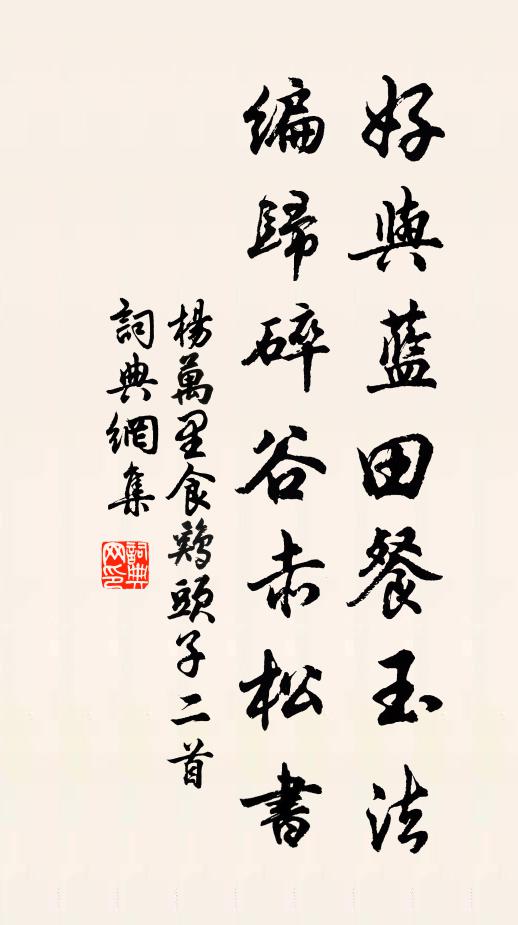 好與藍田餐玉法
編歸碎谷赤松書
楊萬里食鷄頭子二首
詞典網集
詞典網印